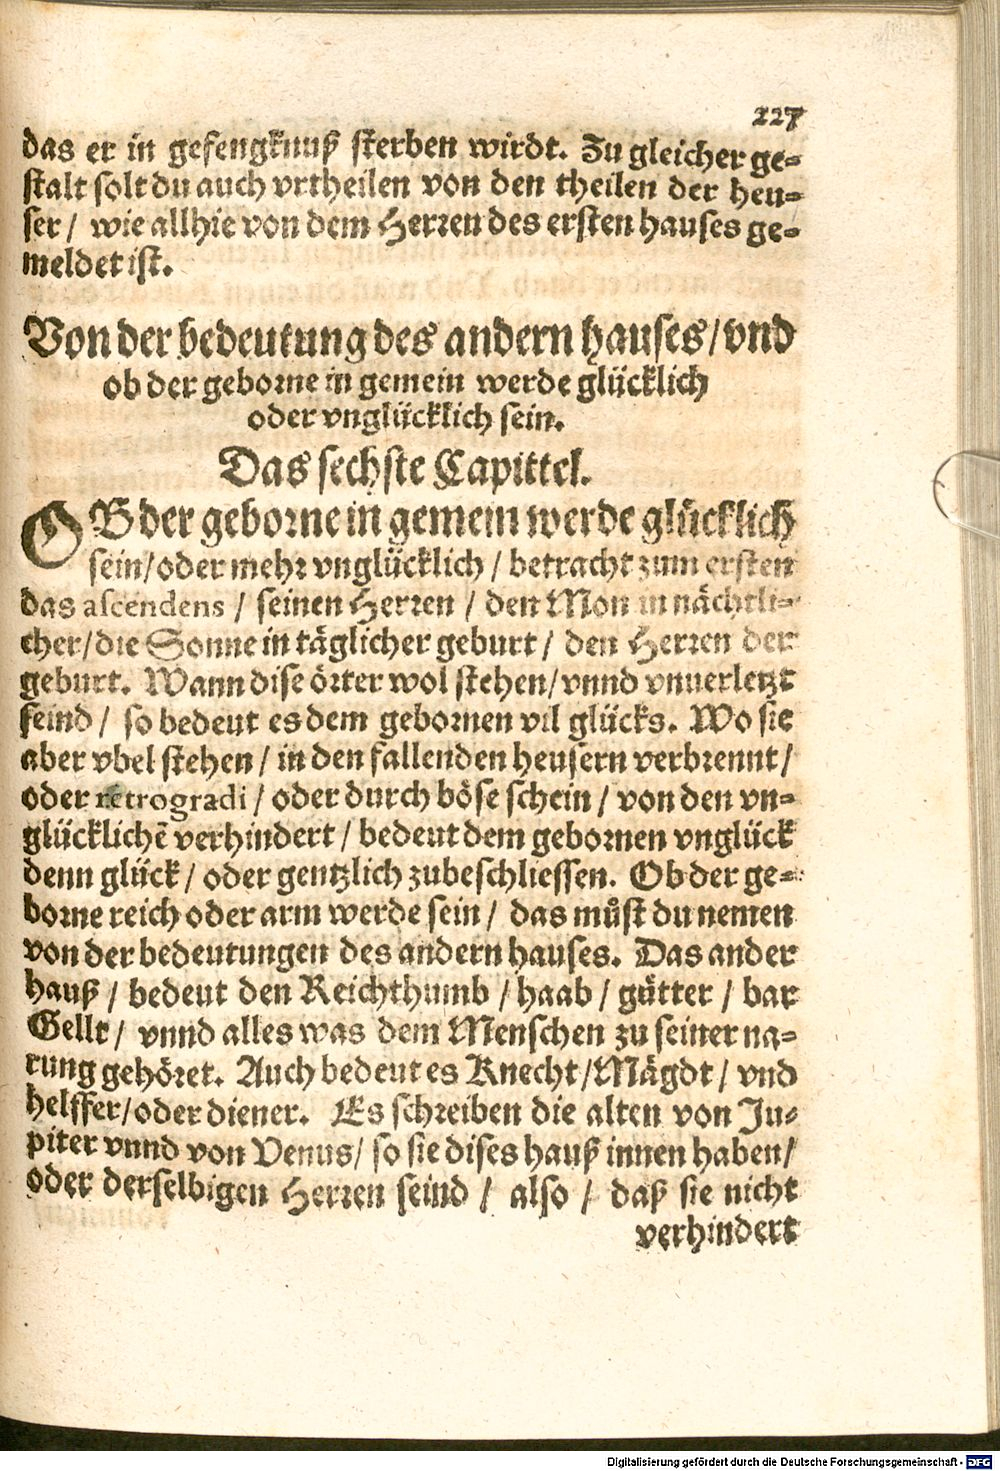 227
das er in gefengknuß sterben wirdt. Zu gleicher ge-
stalt solt du auch vrtheilen von den theilen der heu-
ser / wie allhie von dem Herren des ersten hauses ge-
meldet ist.
Von der bedeutung des andern hauses / vnd
ob der geborne in gemein werde glücklich
oder vnglücklich sein.
Das sechste Capittel.
OB der geborne in gemein werde glücklich
sein / oder mehr vnglücklich / betracht zum ersten
das ascendens / seinen Herren / den Mon in nächtli-
cher / die Sonne in täglicher geburt / den Herren der
geburt. Wann dise örter wol stehen / vnnd vnuerletzt
seind / so bedeut es dem gebornen vil glücks. Wo sie
aber vbel stehen / in den fallenden heusern verbrennt /
oder retrogradi / oder durch böse schein / von den vn-
glücklichẽ verhindert / bedeut dem gebornen vnglück
denn glück / oder gentzlich zubeschliessen. Ob der ge-
borne reich oder arm werde sein / das můst du nemen
von der bedeutungen des andern hauses. Das ander
hauß / bedeut den Reichthumb / haab / gütter / bar
Gellt / vnnd alles was dem Menschen zu seiner na-
rung gehöret. Auch bedeut es Knecht / Mägdt / vnd
helffer / oder diener. Es schreiben die alten von Ju-
piter vnnd von Venus / so sie dises hauß innen haben /
oder derselbigen Herren seind / also / daß sie nicht
verhindert
Digitalisierung gefördert durch die Deutsche Forschungsgemeinschaft - DFG